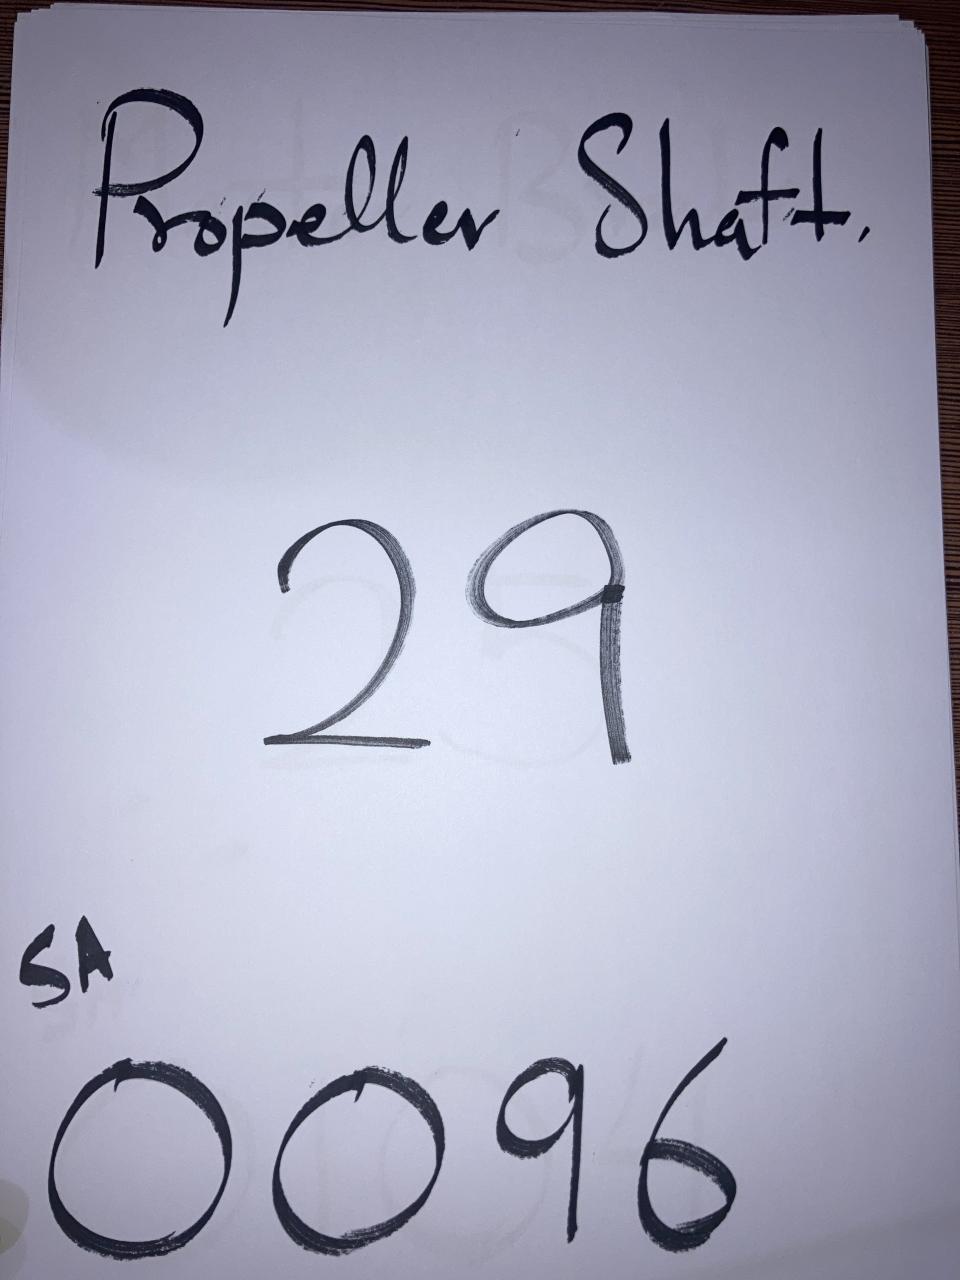 Propeller Shaft.
29
SA
0096